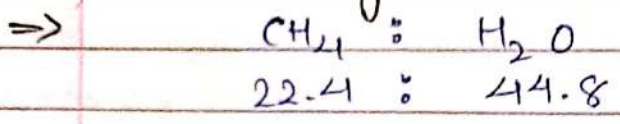 => CH4 : H2O
22.4 : 44.8